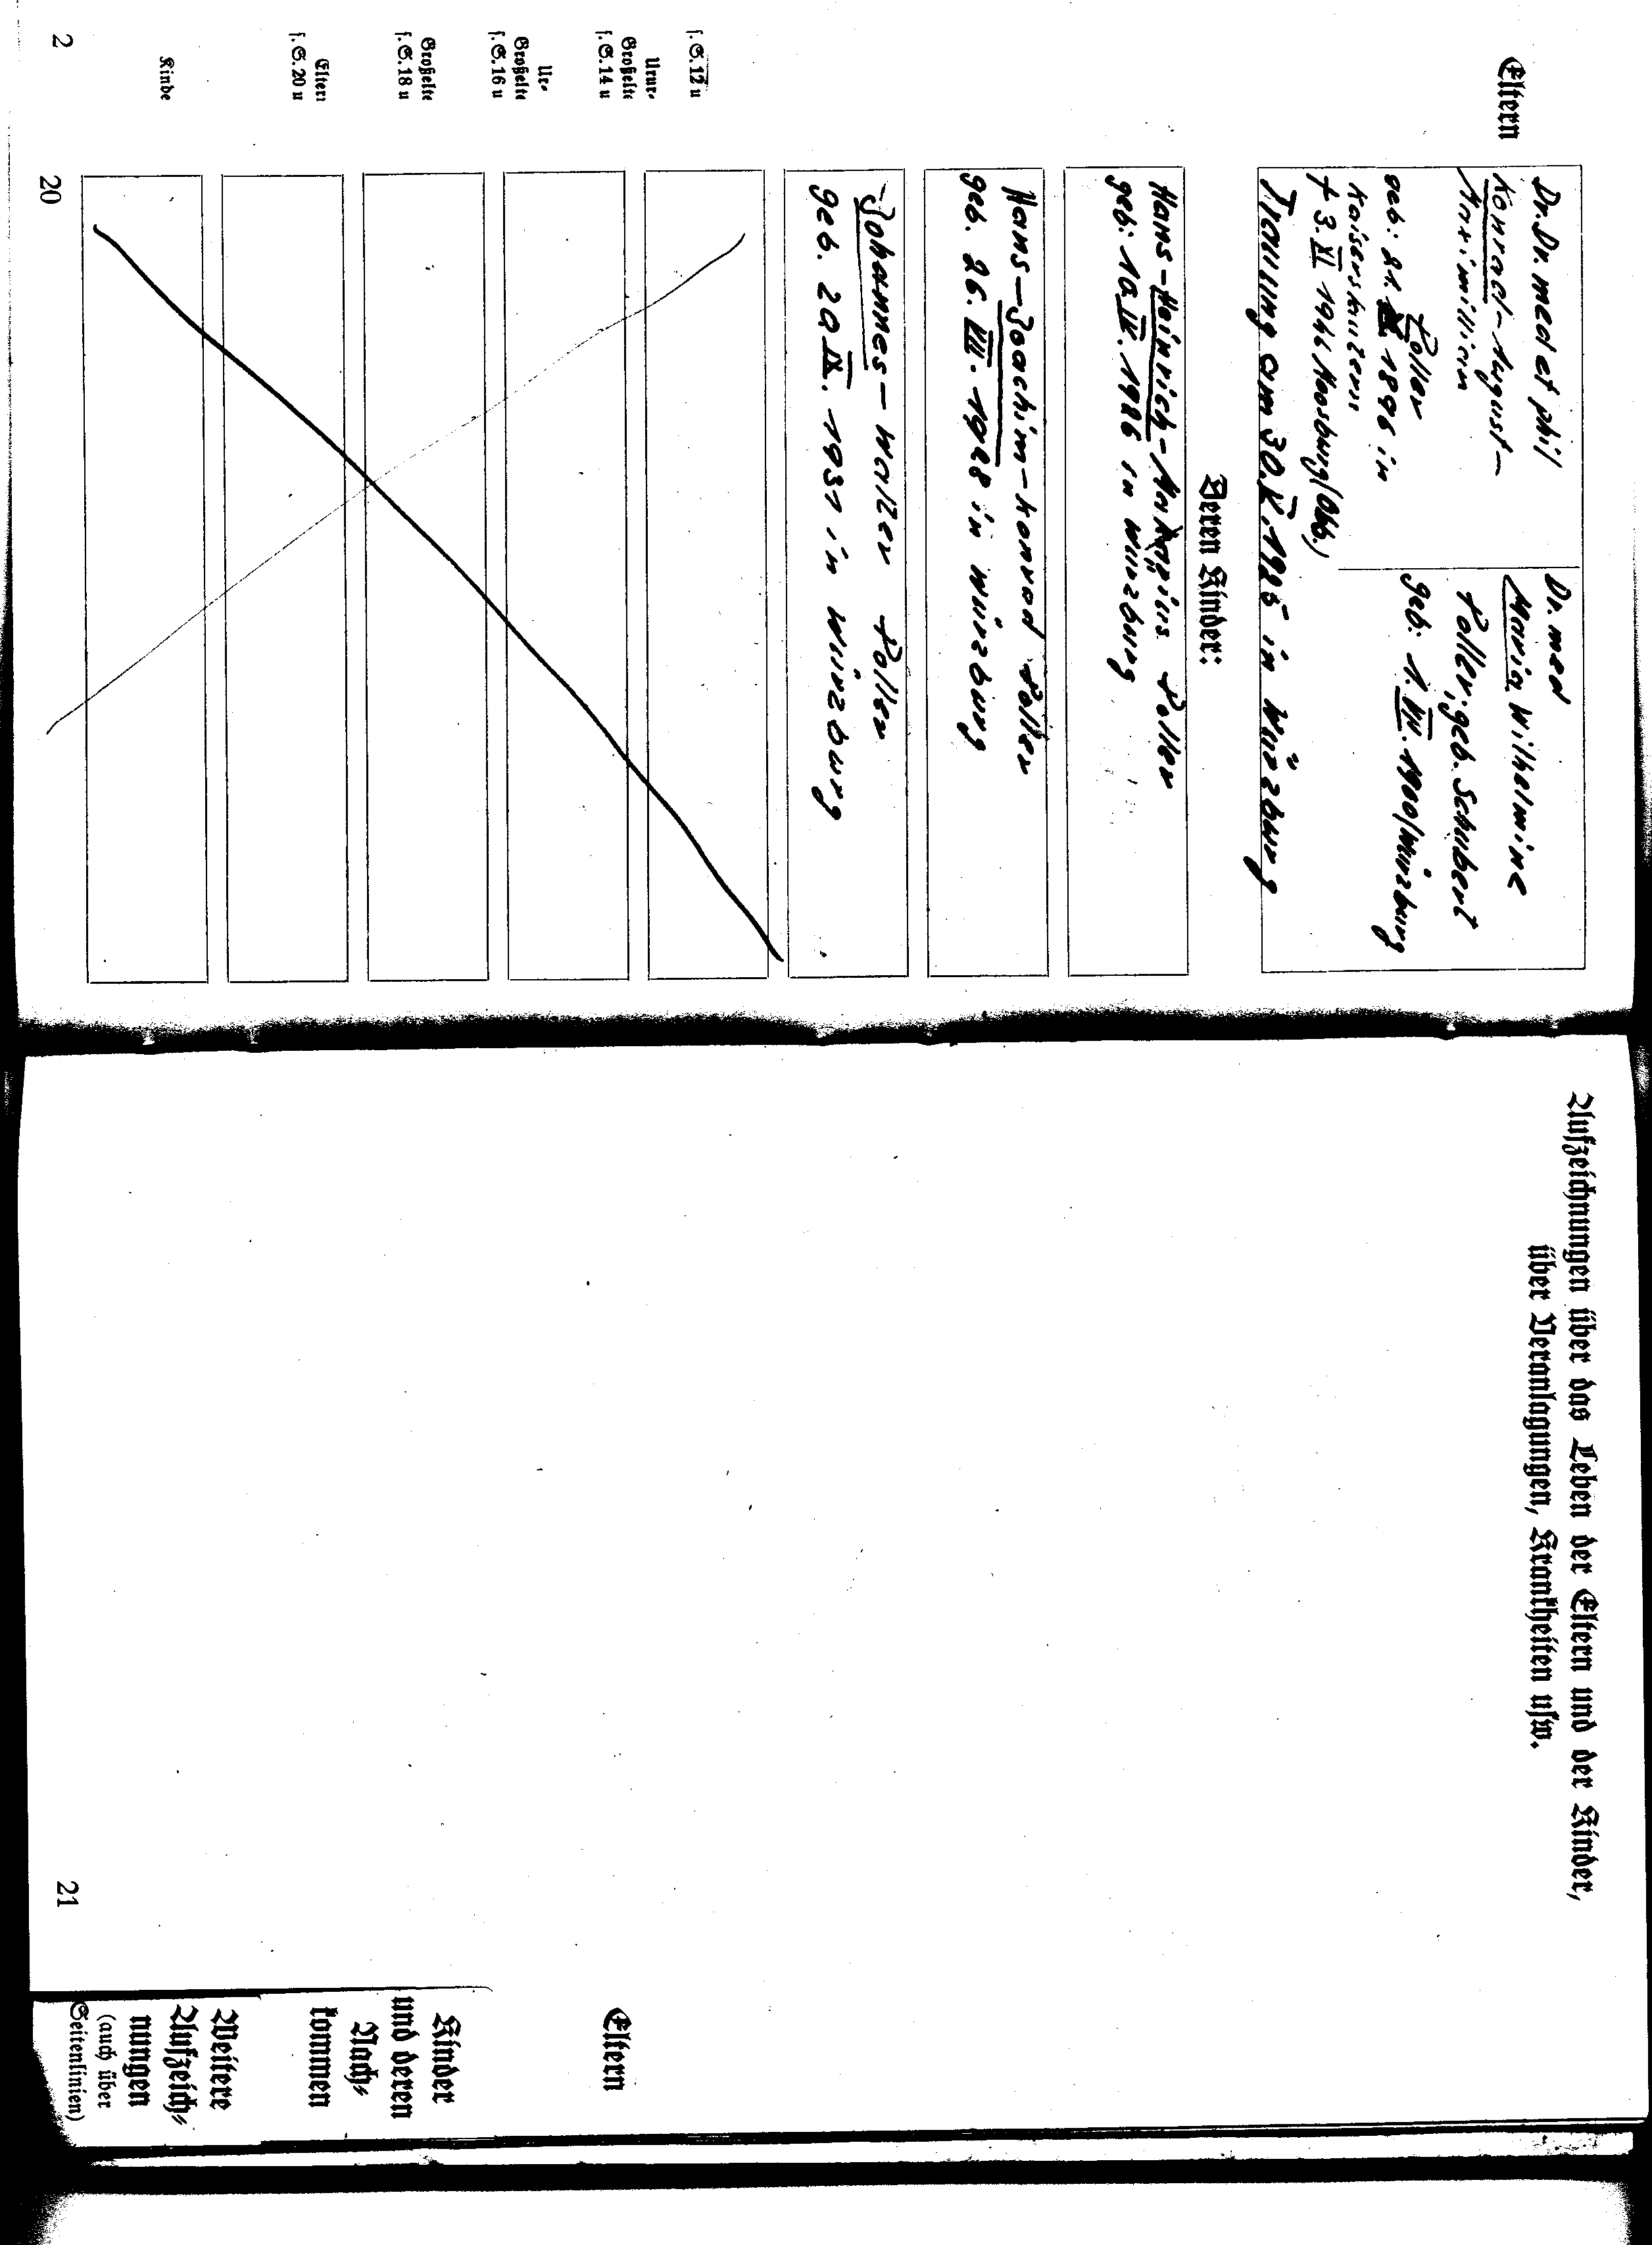 Eltern
Dr. Dr. med et phil
Konrad - August -
Maximilian
Poller
geb: 21. 1896 in
Kaiserslautern
† 3. XI 1944 Moosburg (Obb.)
Dr. med
Maria Wilhelmine
Poller, geb. Schubert
geb: 1. VII. 1900/Würzburg
Trauung am 30. V. 1925 in Würzburg
Deren Kinder:
Hans - Heinrich - Poller
geb: 10. IV. 1926 in Würzburg
Hans - Joachim - Konrad Poller
geb. 26. VII. 1928 in Würzburg
Johannes - Walter Poller
geb. 20 IX. 1931 in Würzburg
ſ. S. 12 u
Urur-
Großelte
ſ. S. 14 u
Ur-
Großelte
ſ. S. 16 u
Großelte
ſ. S. 18 u
Eltern
ſ. S. 20 u
Kinde
2
20
Aufzeichnungen über das Leben der Eltern und der Kinder,
über Veranlagungen, Krankheiten uſw.
21
Eltern
Kinder
und deren
Nach-
kommen
Weitere
Aufzeich-
nungen
(auch über
Seitenlinien)